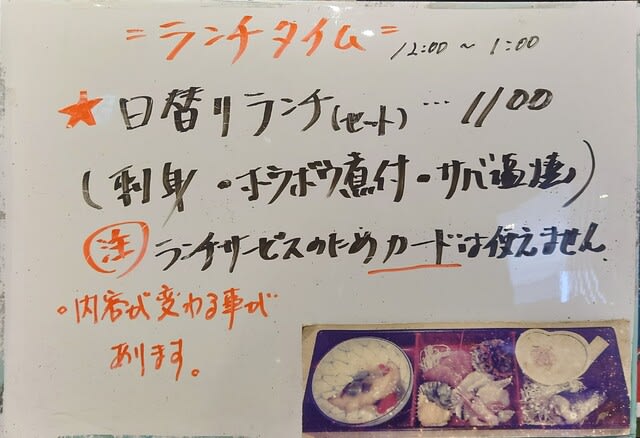 =ランチタイム= 12:00 ~ 1:00
★日替りランチ(セット)…1100
(刺身・ホウボウ煮付・サバ塩焼)
注 ランチサービスのためカードは使えません
・内容が変わる事が
あります。